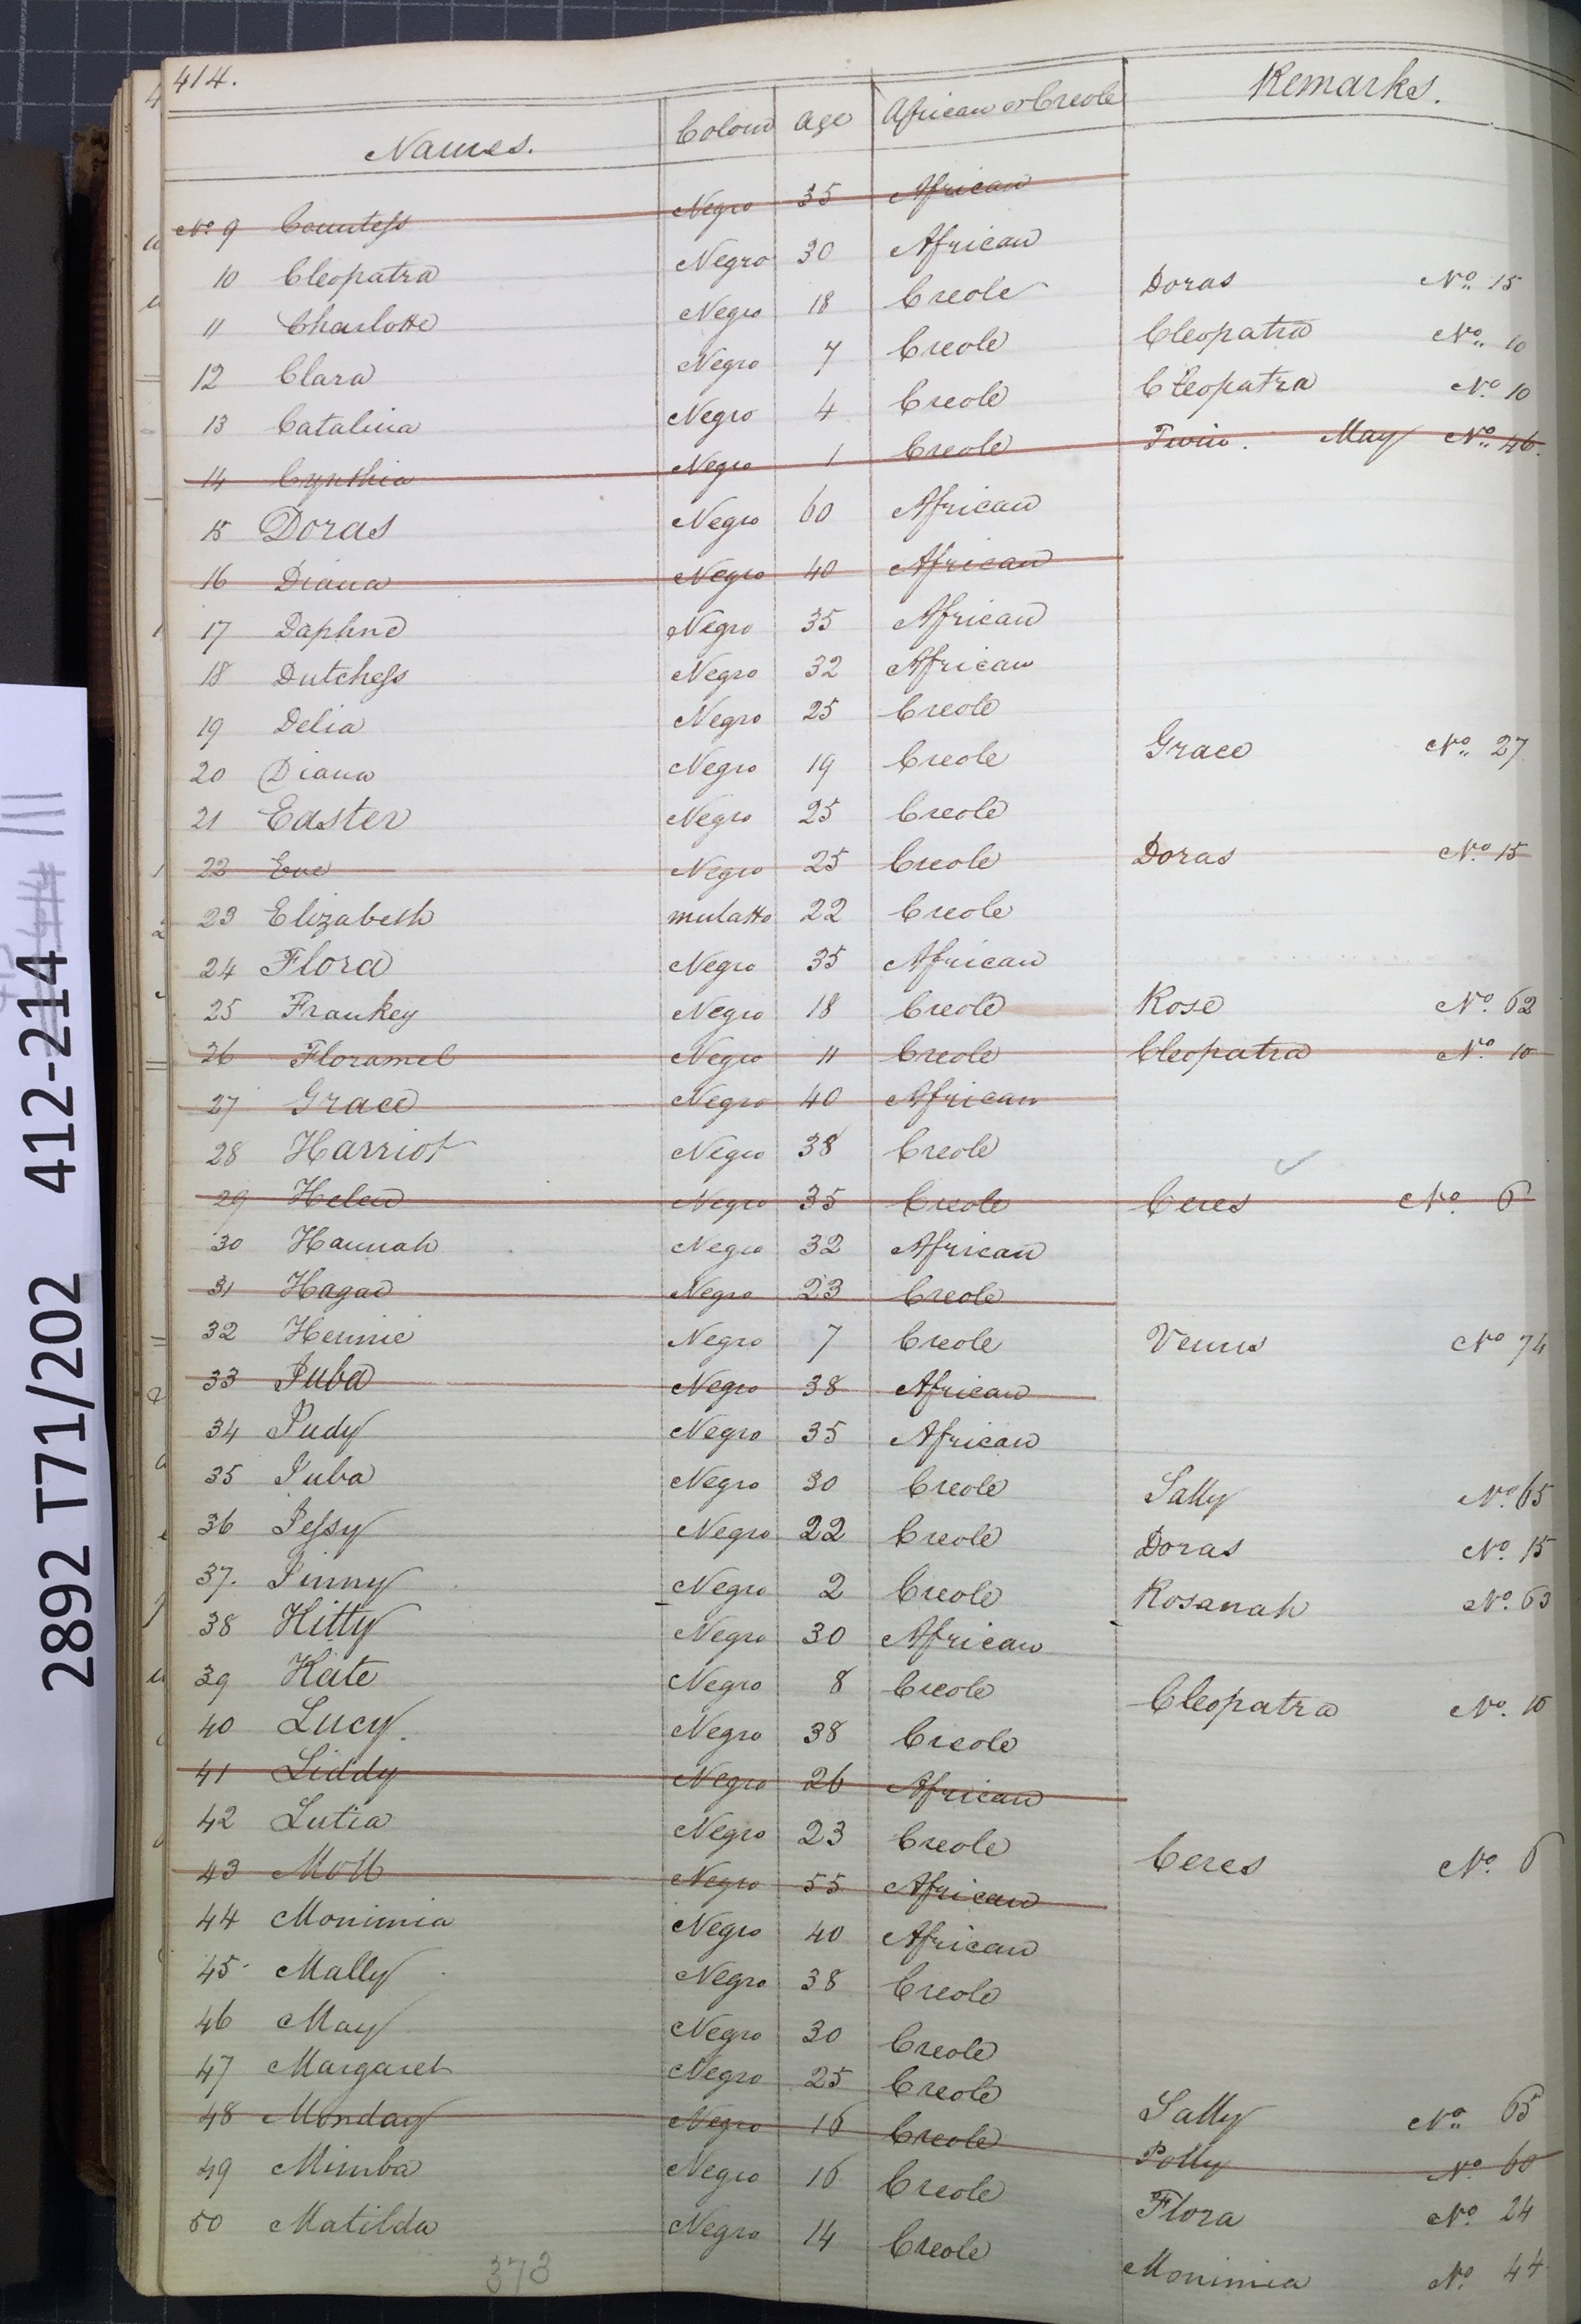 414.
Names. Colour Age African or Creole Remarks.
No. 9 Countess Negro 35 African
10 Cleopatra Negro 30 African
11 Charlotte Negro 18 Creole Doras No. 15
12 Clara Negro 7 Creole Cleopatra No. 10
13 Catalina Negro 4 Creole Cleopatra No. 10
14 Cynthia Negro 1 Creole Twin. May No. 46.
15 Doras Negro 60 African
16 Diana Negro 40 African
17 Daphne Negro 35 African
18 Dutchess Negro 32 African
19 Delia Negro 25 Creole
20 Diana Negro 19 Creole Grace No. 27
21 Easter Negro 25 Creole
22 Eve Negro 25 Creole Doras No. 15
23 Elizabeth mulatto 22 Creole
24 Flora Negro 35 African
25 Frankey Negro 18 Creole Rose No. 62
26 Floramel Negro 11 Creole Cleopatra No. 10
27 Grace Negro 40 African
28 Harriot Negro 38 Creole
29 Helen Negro 35 Creole Ceres No. 6
30 Hannah Negro 32 African
31 Hagar Negro 23 Creole
32 Hennie Negro 7 Creole Venus No 74
33 Juba Negro 38 African
34 Judy Negro 35 African
35 Juba Negro 30 Creole Sally No. 65
36 Jessy Negro 22 Creole Doras No. 15
37. Jinny Negro 2 Creole Rosanah No. 63
38 Kitty Negro 30 African
39 Kate Negro 8 Creole Cleopatra No. 10
40 Lucy. Negro 38 Creole
41 Liddy Negro 26 African
42 Lutia Negro 23 Creole Ceres No. 6
43 Moll Negro 55 African
44 Monimia Negro 40 African
45 Mally Negro 38 Creole
46 May Negro 30 Creole
47 Margaret Negro 25 Creole Sally No. 65
48 Monday Negro 16 Creole Polly No. 60
49 Mimba Negro 16 Creole Flora No. 24
50 Matilda Negro 14 Creole Monimia No. 44
373
2892 T71/202 412-214